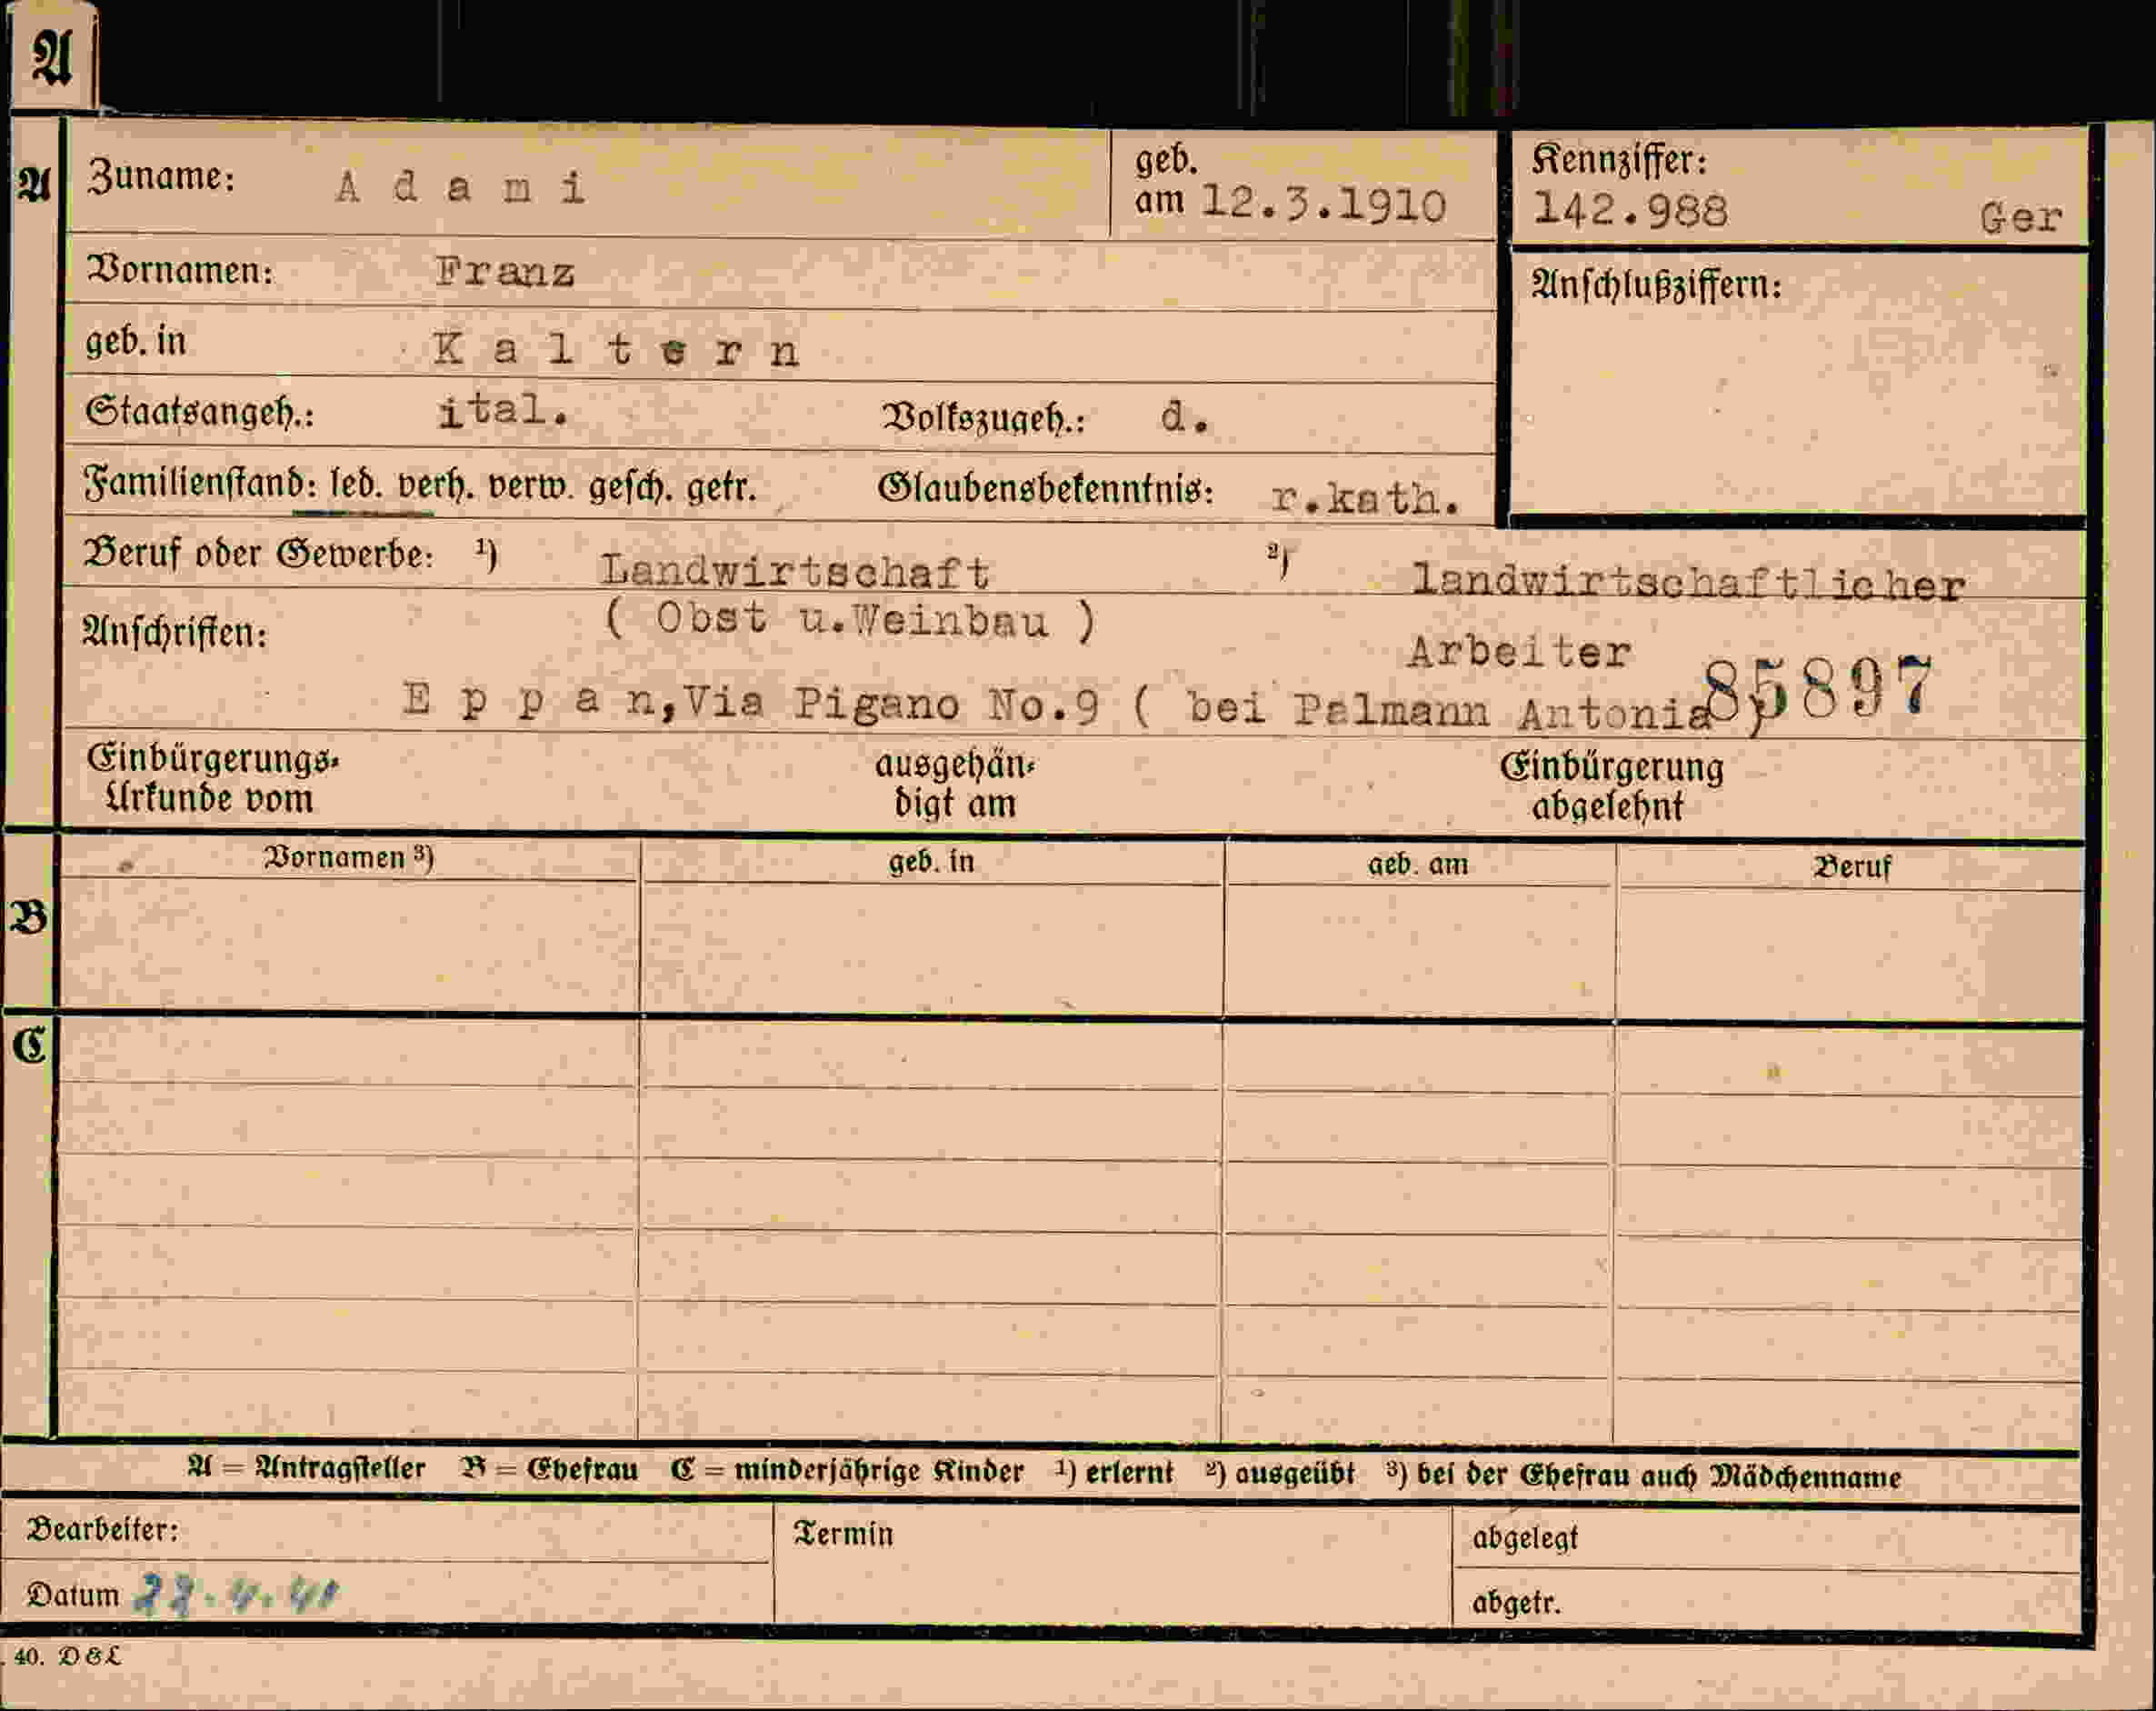 A
A Zuname: A d a m i geb. am 12.3.1910 Kennziffer: 142.988 Ger
Vornamen: Franz Anschlußziffern:
geb. in K a l t e r n
Staatsangeh.: ital. Volkszugeh.: d.
Familienstand: led. verh. verw. gesch. getr. Glaubensbekenntnis: r.kath.
Beruf oder Gewerbe: 1) Landwirtschaft 2) landwirtschaftlicher
( Obst u.Weinbau ) Arbeiter
Anschriften:
E p p a n, Via Pigano No.9 ( bei Palmann Antonia ) 85897
Einbürgerungs-Urkunde vom ausgehändigt am Einbürgerung abgelehnt
Vornamen 3) geb. in geb. am Beruf
B
C
A = Antragsteller B = Ehefrau C = minderjährige Kinder 1) erlernt 2) ausgeübt 3) bei der Ehefrau auch Mädchenname
Bearbeiter: Termin abgelegt
Datum abgetr.
40. D&L